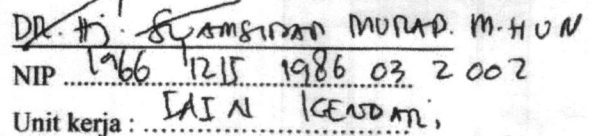 DR. Hj. SYAMSINAR MURAD. M.HUN
NIP 1966 1215 1986 03 2 002
Unit kerja : IAIN KENDARI,